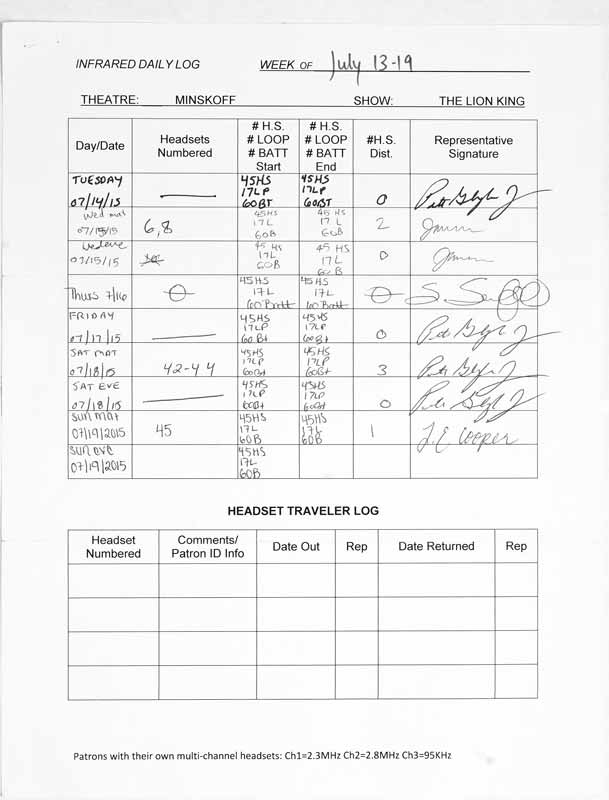 INFRARED DAILY LOG WEEK OF July 13-19
THEATRE: MINSKOFF SHOW: THE LION KING
Day/Date
Headsets
Numbered
# H.S.
# LOOP
# BATT
Start
# H.S.
# LOOP
# BATT
End
#H.S.
Dist.
Representative
Signature
TUESDAY
07/14/15
—
45HS
17LP
60BT
45HS
17LP
60BT
0
Wed mat
07/15/15
6,8
45HS
17L
60B
45HS
17L
60B
2
Wed eve
07/15/15
45 HS
17L
60B
45 HS
17L
60B
0
Thurs 7/16
45HS
17L
60 Batt
45HS
17L
60 Batt
FRIDAY
07/17/15
—
45HS
17LP
60Bt
45HS
17LP
60Bt
0
SAT MAT
07/18/15
42-44
45HS
17LP
60Bt
45HS
17LP
60Bt
3
SAT EVE
07/18/15
—
45HS
17LP
60Bt
45HS
17LP
60Bt
0
SUN MAT
07/19/2015
45
45HS
17L
60B
45HS
17L
60B
1
J.E Cooper
SUN EVE
07/19/2015
45HS
17L
60B
HEADSET TRAVELER LOG
Headset
Numbered
Comments/
Patron ID Info
Date Out
Rep
Date Returned
Rep
Patrons with their own multi-channel headsets: Ch1=2.3MHz Ch2=2.8MHz Ch3=95KHz